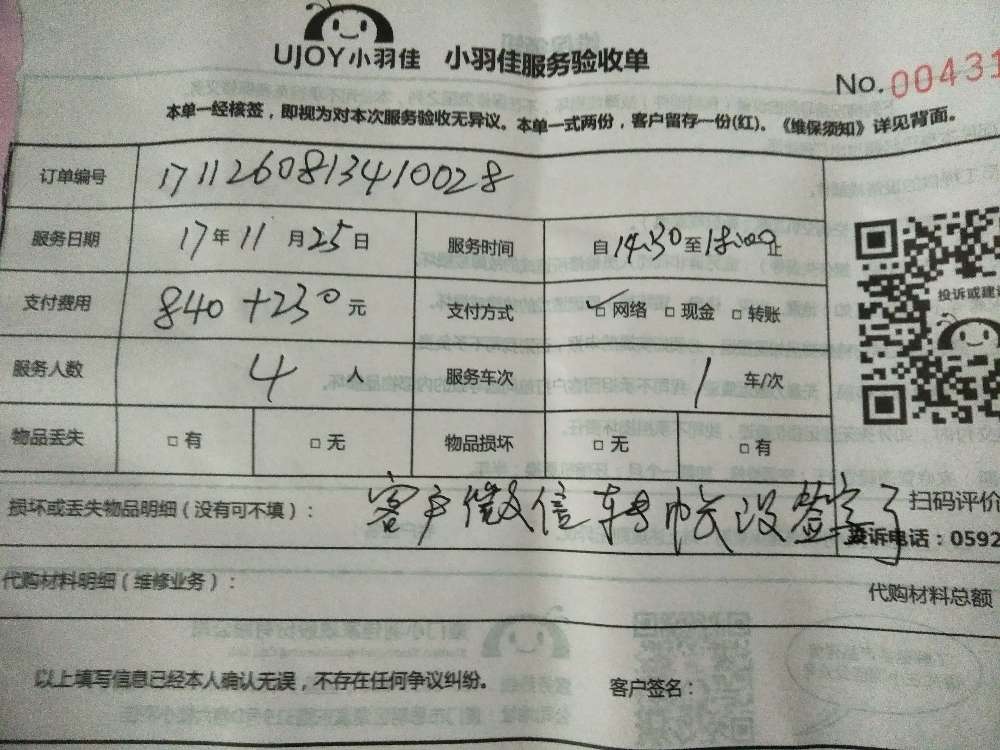 UJOY小羽佳 小羽佳服务验收单
No. 00431
本单一经核签，即视为对本次服务验收无异议。本单一式两份，客户留存一份(红)。《维保须知》详见背面。
订单编号 1711260813410028
服务日期 17年11月25日 服务时间 自14:30至18:00止
支付费用 840+230元 支付方式 ✓□网络 □现金 □转账
服务人数 4人 服务车次 1车/次
物品丢失 □有 □无 物品损坏 □无 □有
投诉或建
损坏或丢失物品明细（没有可不填）： 客户微信转帐没签字了
扫码评价
投诉电话：0592
代购材料明细（维修业务）： 代购材料总额
以上填写信息已经本人确认无误，不存在任何争议纠纷。 客户签名：